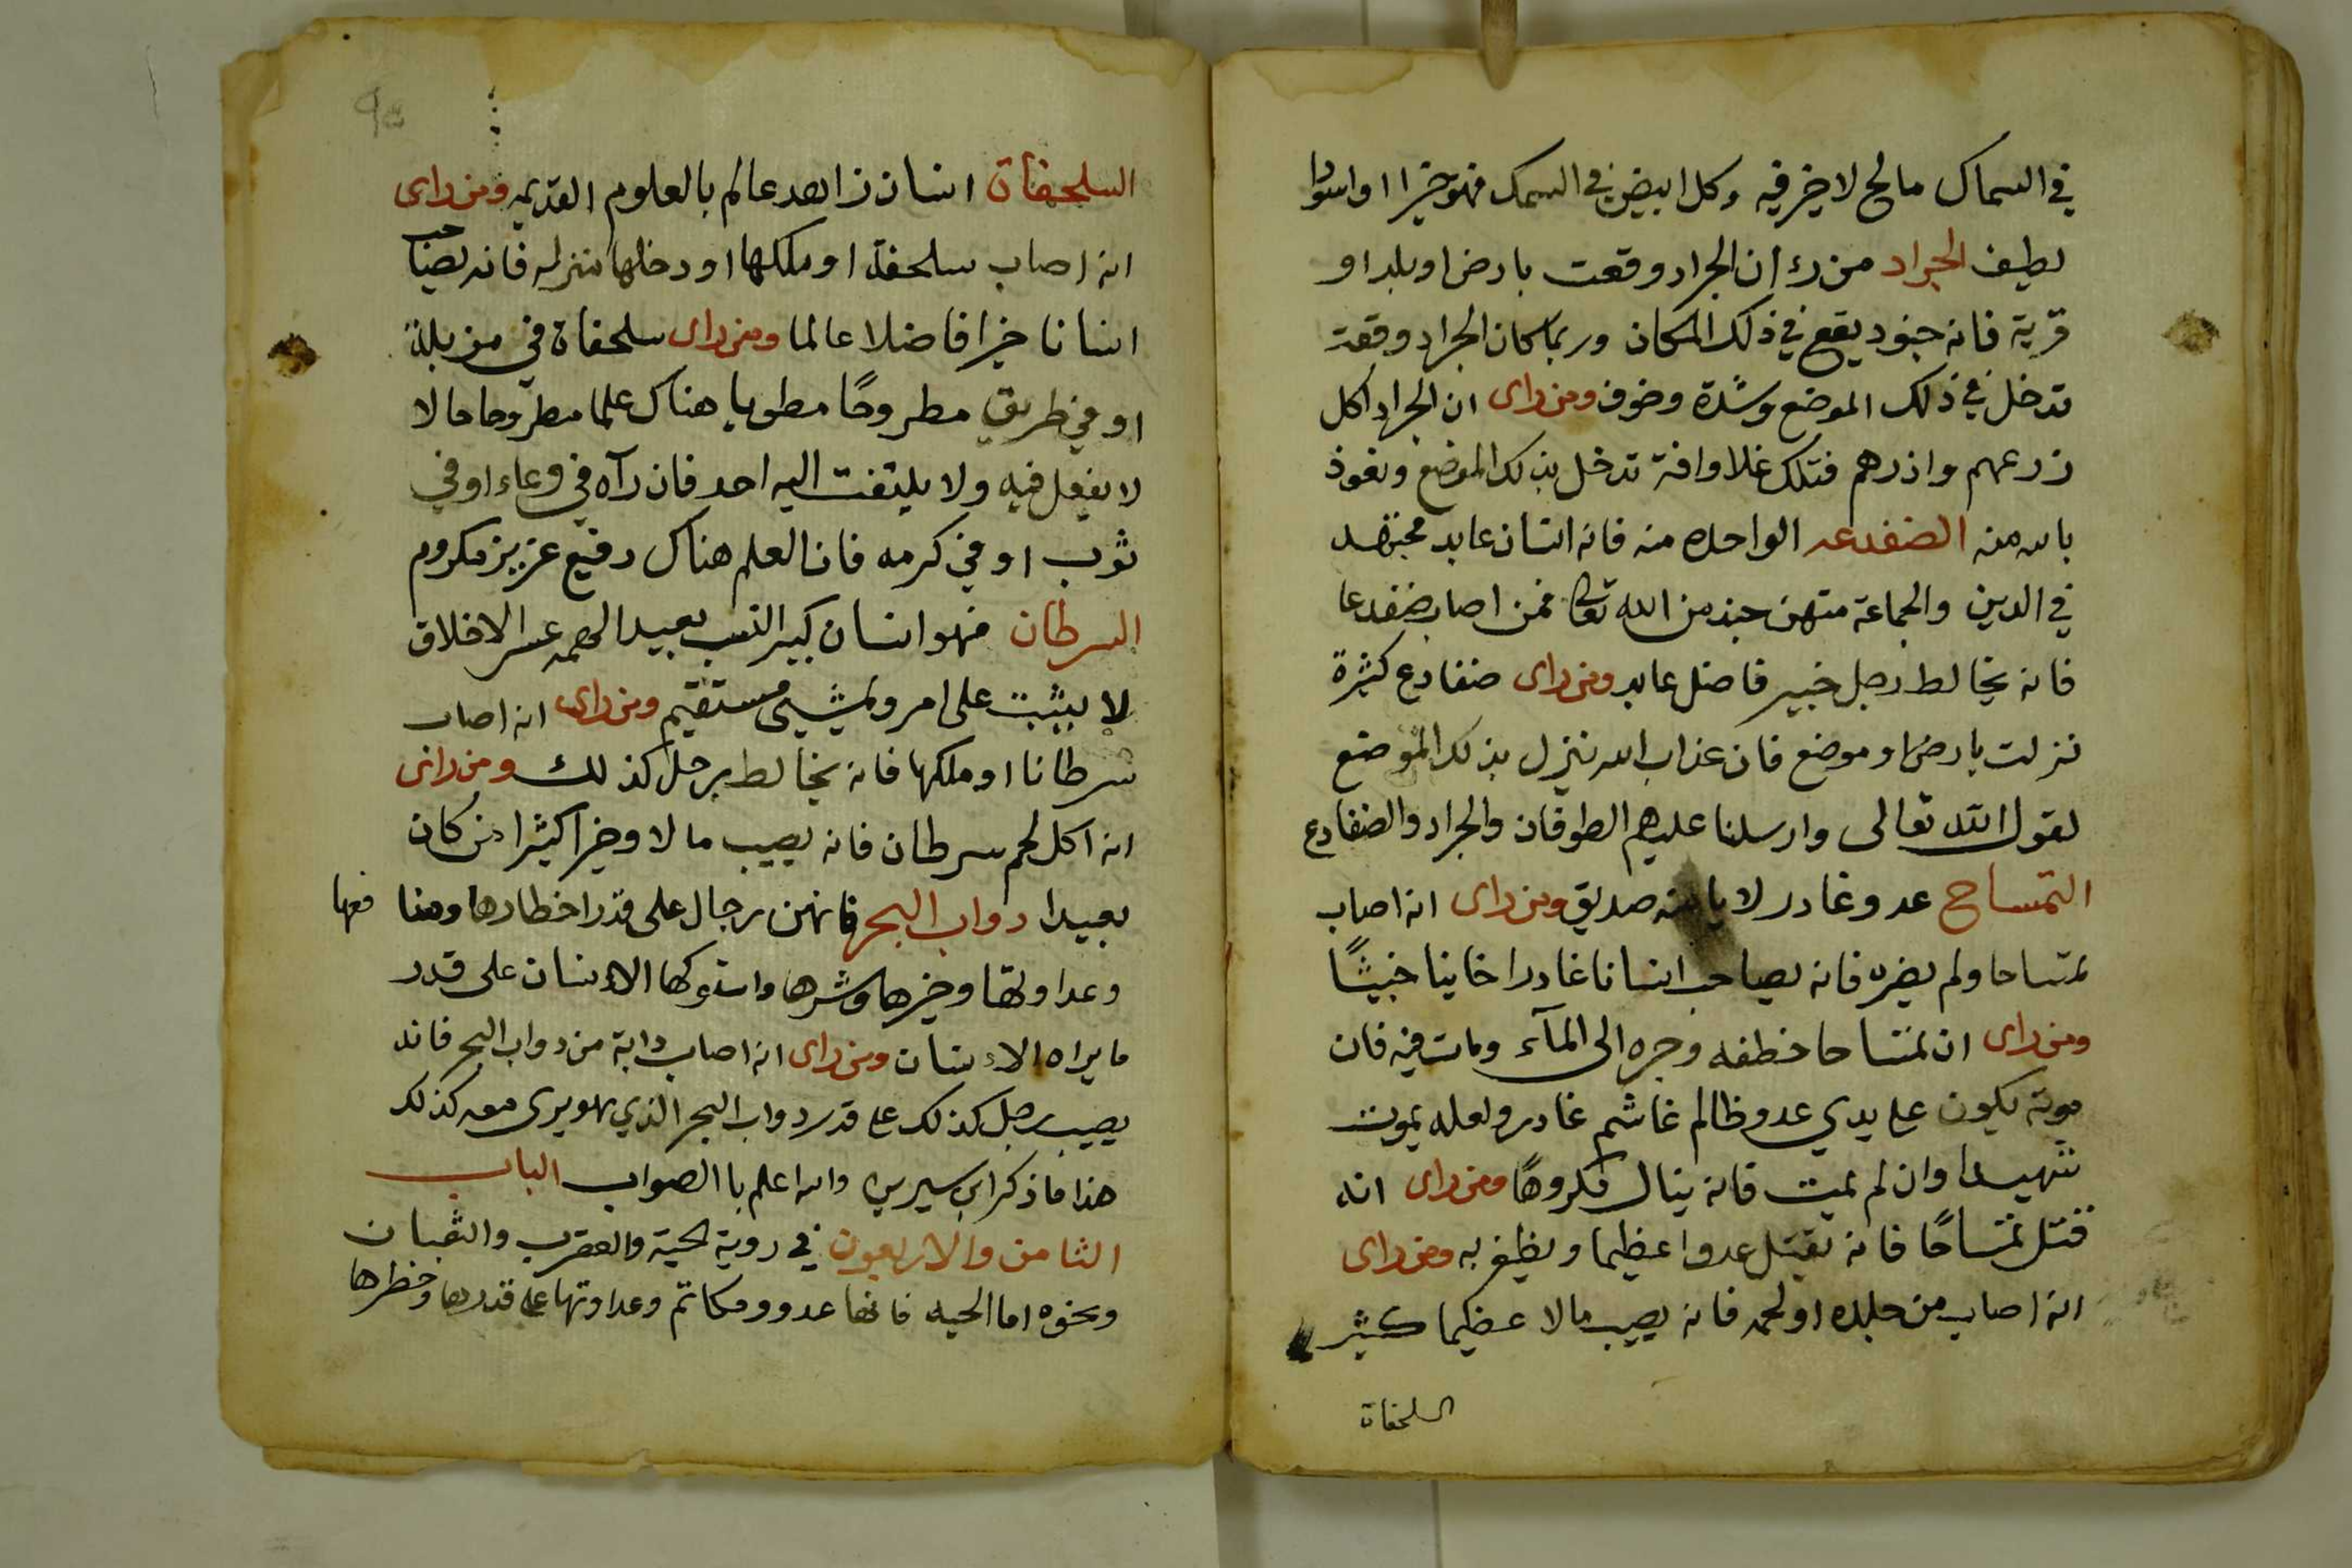 في السماك مالح لا خير فيه وكل ابيض في السمك فهو خيرا او اسودا
لطيف الجراد من رء ان الجراد وقعت بارض او بلد او
قرية فانه جنود يقع في ذلك المكان وربما كان الجراد وقعة
تدخل في ذلك الموضع وشدة وخوف ومن راى ان الجراد اكل
زرعهم واذرهم فتلك غلا وافة تدخل بذلك الموضع ونعوذ
بالله منه الضفدعه الواحده منه فانه انسان عابد مجتهد
في الدين والجماعة منهن جند من الله تعالى فمن اصاب ضفدعا
فانه يخالط رجل خيير فاضل عابد ومن راى ضفادع كثيرة
نزلت بارض او موضع فان عذاب الله ينزل بذلك الموضع
لقول الله تعالى وارسلنا عليهم الطوفان والجراد والضفادع
التمساح عدو غادر لا يامنه صديق ومن راى انه اصاب
تمساحا ولم يضره فانه يصاحب انسانا غادرا خاينا خبيثًا
ومن راى ان تمساحا خطفه وجره الى المآء ومات فيه فان
موته يكون على يدي عدو ظالم غاشم غادر ولعله يموت
شهيدا وان لم يمت فانه ينال مكروهًا ومن راى انه
قتل تمساحًا فانه يقتل عدوا عظيما ويظفر به ومن راى
انه اصاب من جلده او لحمه فانه يصيب مالا عظيما كثير
السلحفاة
السلحفاة انسان زاهد عالم بالعلوم القديمه ومن راى
انه اصاب سلحفة او ملكها او دخلها منزله فانه يصاحب
انسانا خيرا فاضلا عالما ومن راى سلحفاة في مزبلة
او في طريق مطروحًا مطويا هناك علما مطروحا حالا
لا يفعل فيه ولا يلتفت اليه احد فان رآه في وعاء او في
ثوب او في كرمه فان العلم هناك رفيع عزيز مكروم
السرطان فهو انسان كبير النسب بعيد الهمه عسر الاخلاق
لا يثبت على امر ويمشي مستقيم ومن راى انه اصاب
سرطانا او ملكها فانه يخالط برجل كذلك ومن راى
انه اكل لحم سرطان فانه يصيب مالا وخيرا كثيرا من كان
بعيدا دواب البحر فانهن رجال على قدر اخطارها ومنافعها
وعداوتها وخيرها وشرها الانسان على قدر
ما يراه الانسان ومن راى انه اصاب دابة من دواب البحر فانه
يصيب رجل كذلك على قدر دواب البحر الذي هو يرى معه كذلك
هذا ما ذكر ابن سيرين والله اعلم باالصواب الباب
الثامن والاربعون في روية الحية والعقرب والثعبان
ونحوه اما الحيه فانها عدو ومكاتم وعداوتها على قدرها وخطرها